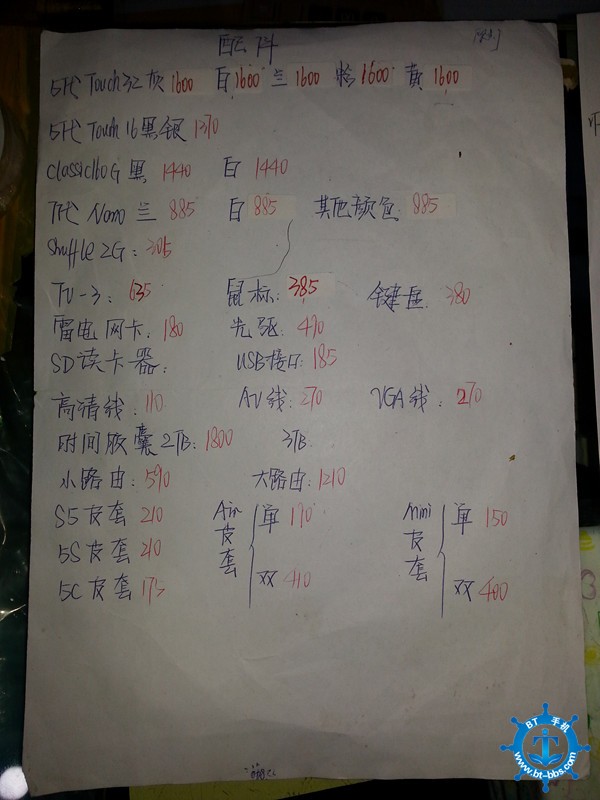 配件
5代 Touch 32 灰 1600 白 1600 兰 1600 粉 1600 黄 1600
5代 Touch 16 黑银 1370
classic160G 黑 1440 白 1440
7代 Nano 兰 885 白 885 其他颜色: 885
Shuffle 2G: 305
TV-3: 635 鼠标: 385 键盘: 380
雷电网卡: 180 光驱: 490
SD读卡器: USB接口: 185
高清线: 110 AV线: 270 VGA线: 270
时间胶囊2TB: 1800 3TB:
小路由: 590 大路由: 1210
S5皮套 210 Air皮套 单 170 mini皮套 单 150
5S皮套 210
5C皮套 175 双 410 双 400
BT 手机
www.bt-bbs.com